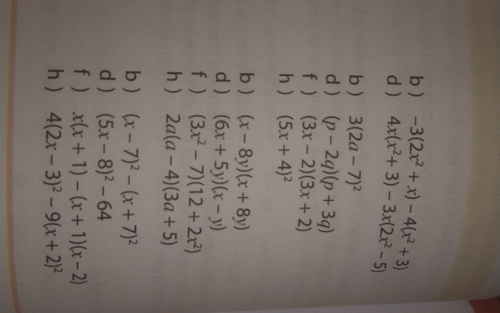 b ) −3(2x² + x) − 4(x² + 3)
d ) 4x(x² + 3) − 3x(2x² − 5)
b ) 3(2a − 7)²
d ) (p − 2q)(p + 3q)
f ) (3x − 2)(3x + 2)
h ) (5x + 4)²
b ) (x − 8y)(x + 8y)
d ) (6x + 5y)(x − y)
f ) (3x² − 7)(12 + 2x²)
h ) 2a(a − 4)(3a + 5)
b ) (x − 7)² − (x + 7)²
d ) (5x − 8)² − 64
f ) x(x + 1) − (x + 1)(x − 2)
h ) 4(2x − 3)² − 9(x + 2)²